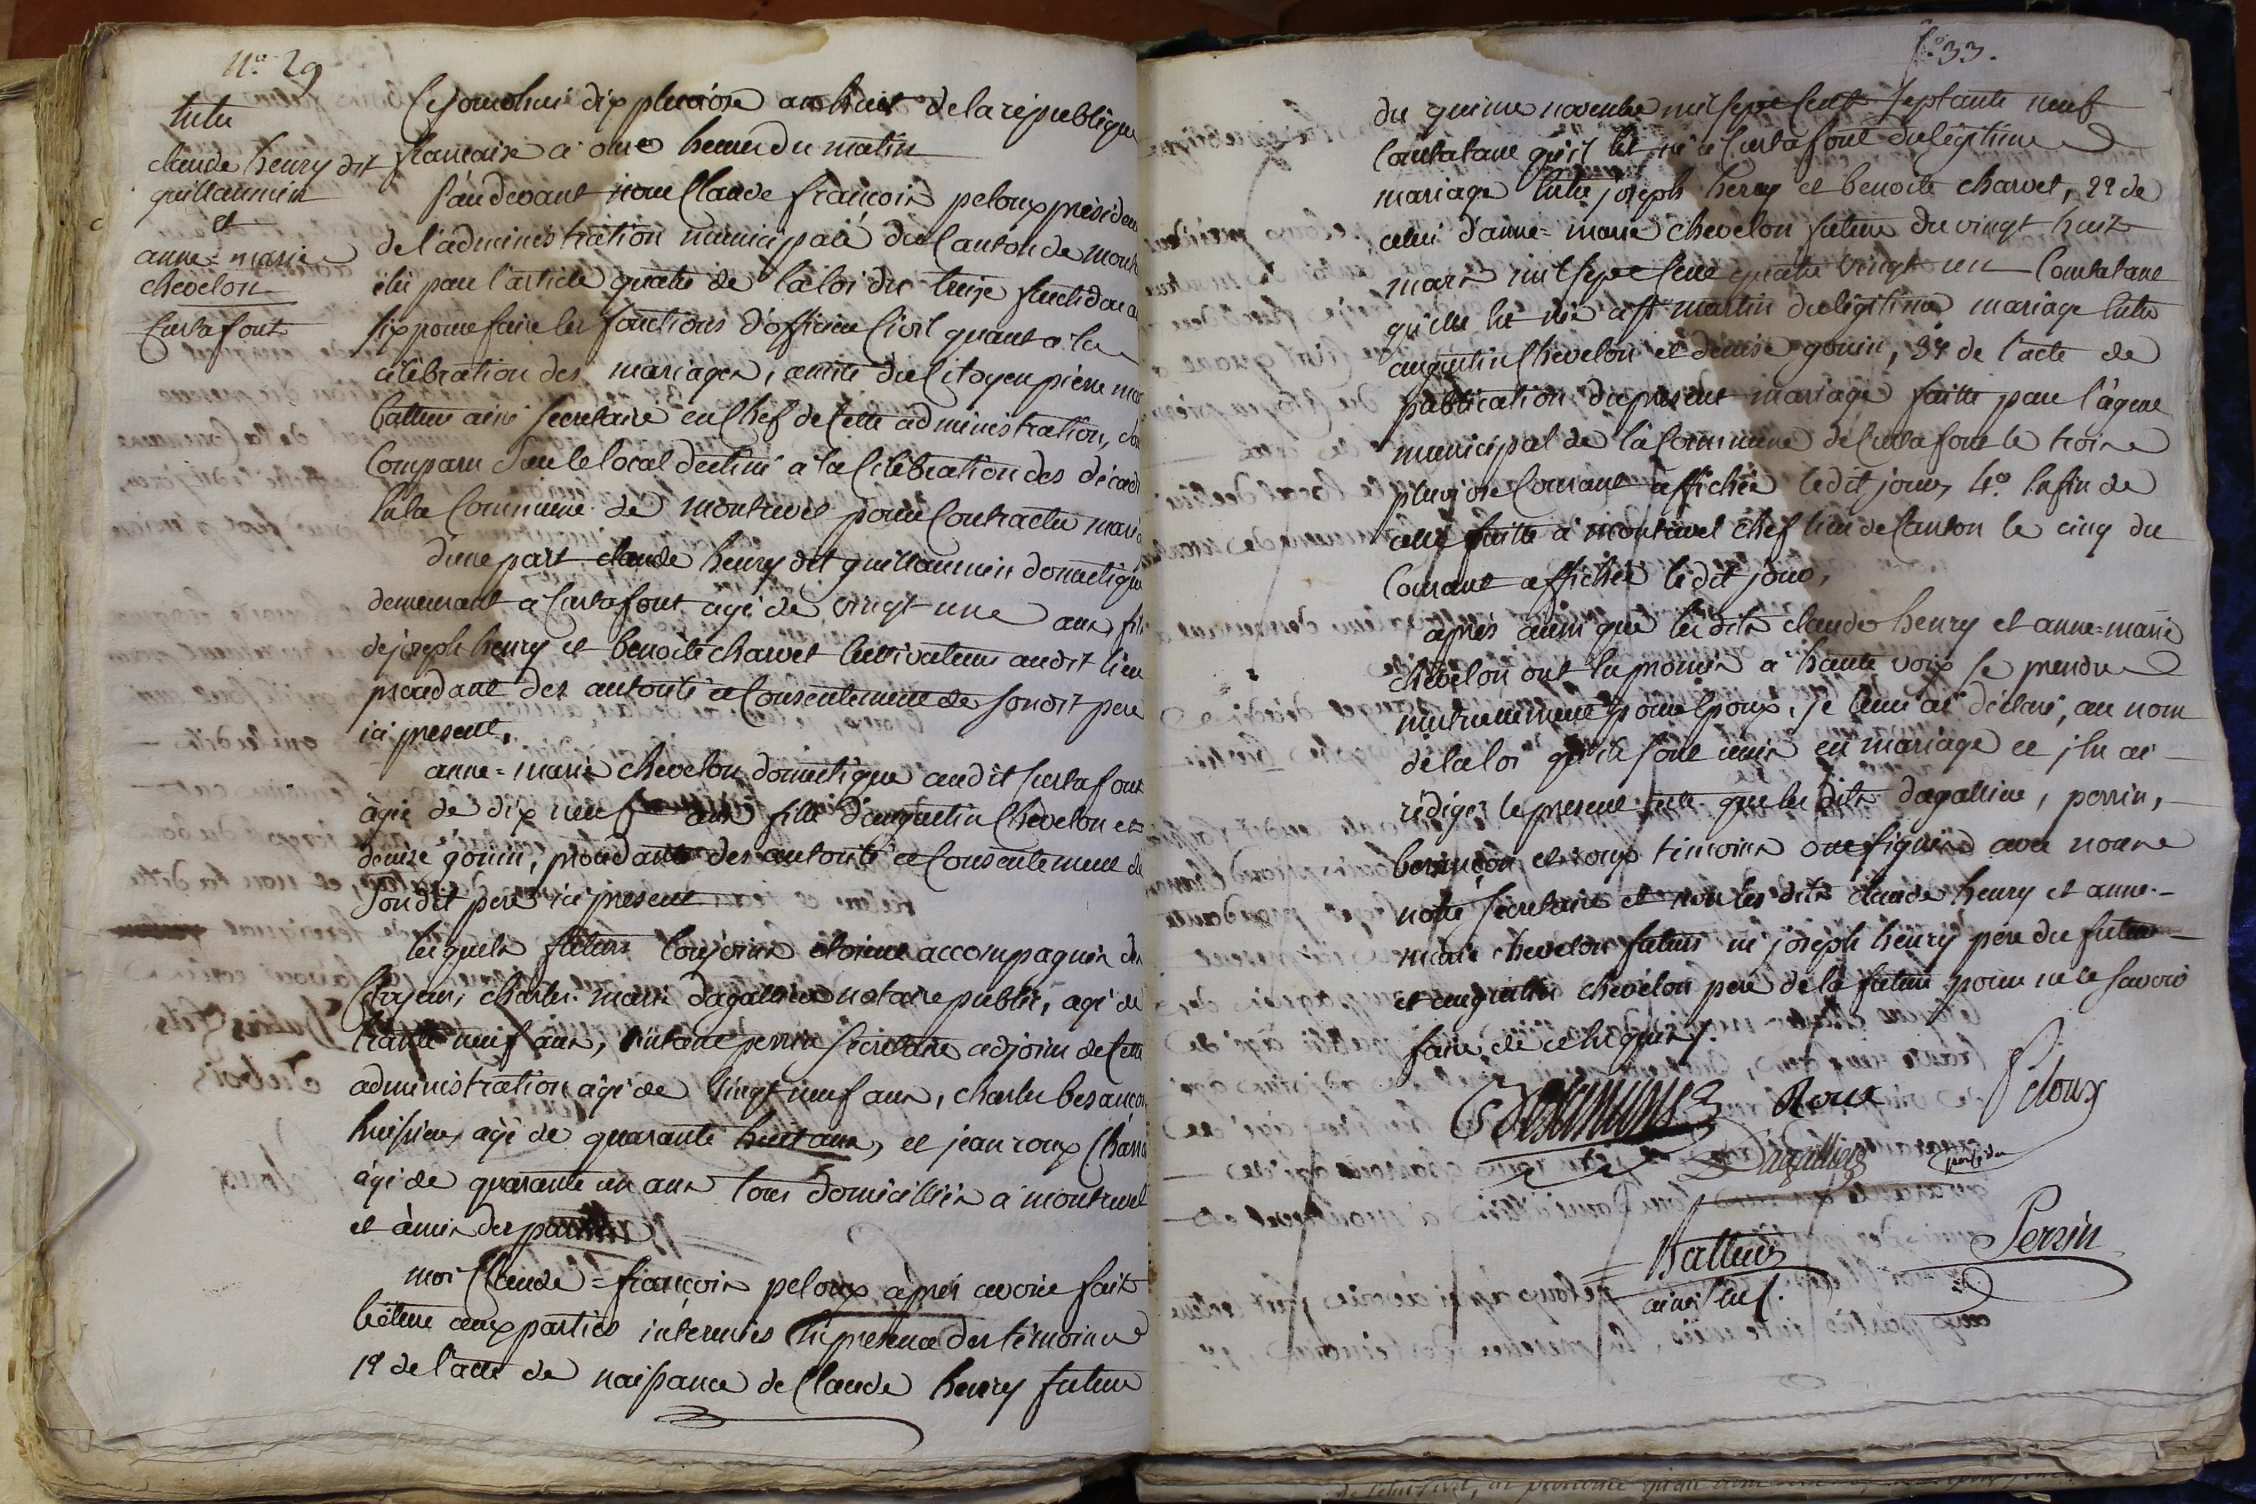 N.° 29
Entre
claude henry dit
guillaumin
et
anne=marie
chevelon
Curtafont
Cejourdhui dix pluviose an huit de la république
francaise a onze heures du matin
Pardevant nous Claude francois peloux président
de l'administration municipale du Canton de mont
élu par l'article quatre de la loi du treize fructidor an
six pour faire les fonctions d'officier Civil quant a la
célébration des mariages, assisté du Citoyen pierre mar
battur ainé secretaire en Chef de Cette administration,
Comparu dans le local destiné a la Célébration des décadi
En la Commune de montrevel pour Contracter mariage
d'une part claude henry dit guillaumin domestique
demeurant a Curtafont agé de vingt une ans, fils
de joseph henry et benoite charvet Cultivateurs audit lieu
procedant des autorité et Consentement de son dit pere
ici present.
anne=marie chevelon domestique audit Curtafont
agée de dix neuf ans fille d'augustin Chevelon et
denise gonin, procedante des autorité et Consentement de
Son dit pere ici present
lesquels futurs Conjoints etoient accompagnés des
Citoyens, charles marie dagallier notaire public, agé de
trente neuf ans, perrin sécrétaire adjoint de Cette
administration agé de vingt neuf ans, charles besancon
huissier, agé de quarante huit ans, et jean roux
agé de quarante un ans tous domicilliés a montrevel
et amis des parties
moi Claude=francois peloux après avoir fait
lecture aux parties interessées En presence des témoins
1.° de l'acte de naissance de Claude henry futur
f.° 33.
du quinze novembre mil sept Cent septante neuf
Constatant qu'il est né a Curtafont du légitime
mariage Entre joseph henry et benoite charvet, 2.° de
celui d'anne=marie chevelon future du vingt huit
mars mil sept Cent quatre vingt un Constatant
qu'elle est née a st martin du légitime mariage Entre
augustin Chevelon et denise gonin, 3.° de l'acte de
publication du present mariage faitte par l'agent
municipal de la Commune de Curtafont le trois
pluviose Courant affichée le dit jour, 4.° Enfin de
celle faitte a montrevel chef lieu de Canton le cinq du
Courant affichée le dit jour,
après aussi que les dits claude henry et anne=marie
chevelon ont Eu promis a haute voix se prendre
mutuellement pour Epoux, je leur ai déclaré, au nom
de la loi qu'ils sont unis en mariage et j'en ai
rédigé le present acte que les dits dagallier, perrin,
besancon et roux témoins ont signés avec nous
notre secretaire et non les dits claude henry et anne-
marie chevelon futurs ni joseph henry pere du futur
et augustin chevelon pere de la future pour ne le savoir
faire de ce Enquis.
Besancon Roux Peloux
Dagallier
Battur Perrin
ainé